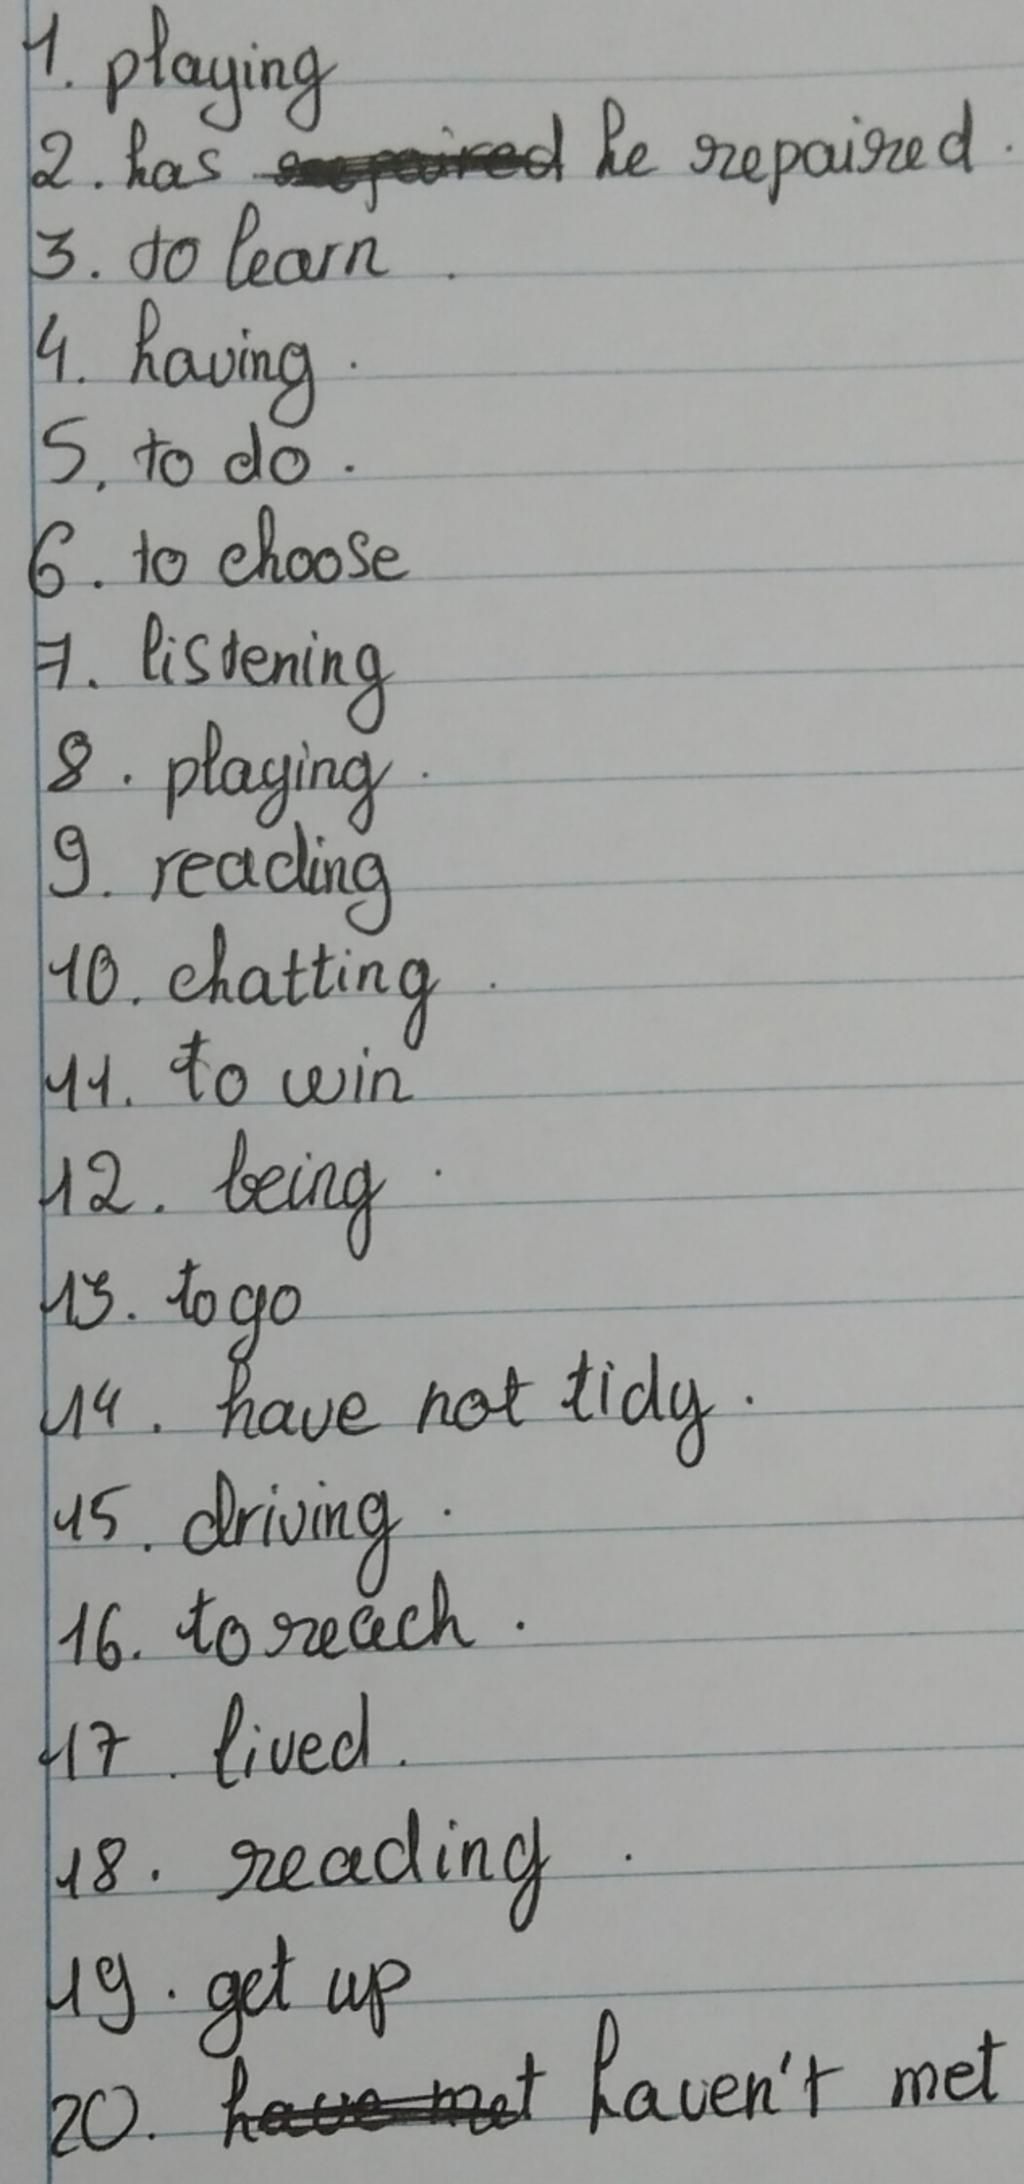 1. playing
2. has repaired he repaired.
3. to learn.
4. having.
5. to do.
6. to choose
7. listening
8. playing.
9. reading
10. chatting.
11. to win
12. being.
13. to go
14. have not tidy.
15. driving.
16. to reach.
17. lived.
18. reading.
19. get up
20. have met haven't met